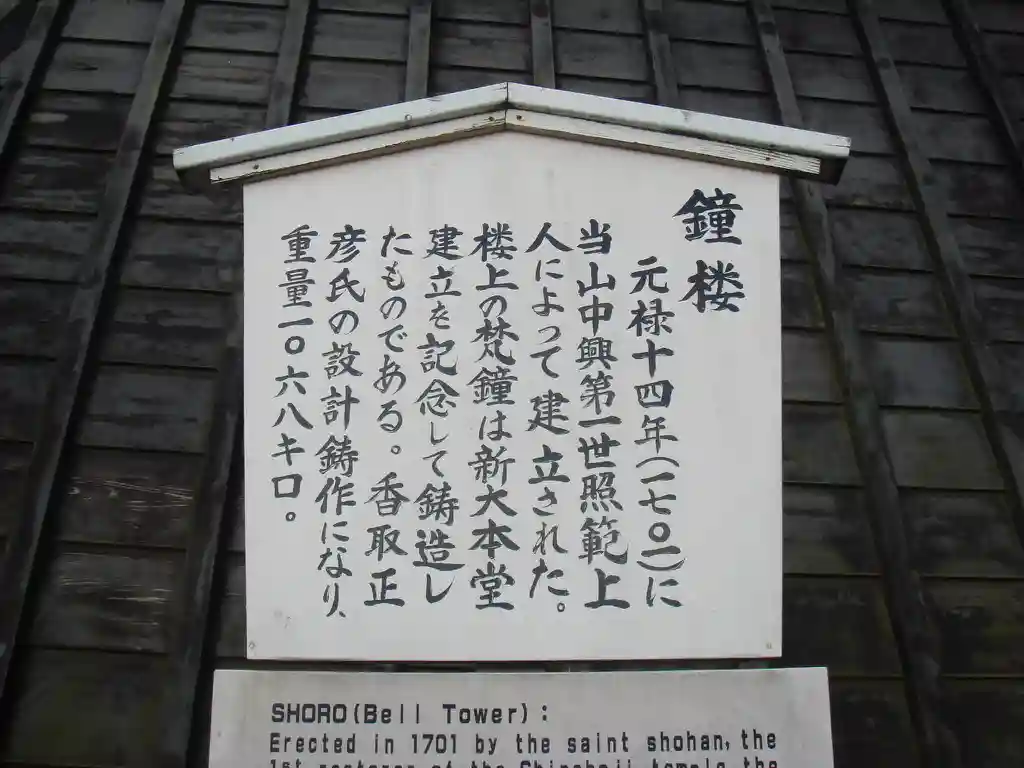 鐘楼
元禄十四年(一七〇一)に
当山中興第一世照範上
人によって建立された。
楼上の梵鐘は新大本堂
建立を記念して鋳造し
たものである。香取正
彦氏の設計鋳作になり、
重量一〇六八キロ。
SHORO(Bell Tower):
Erected in 1701 by the saint shohan, the